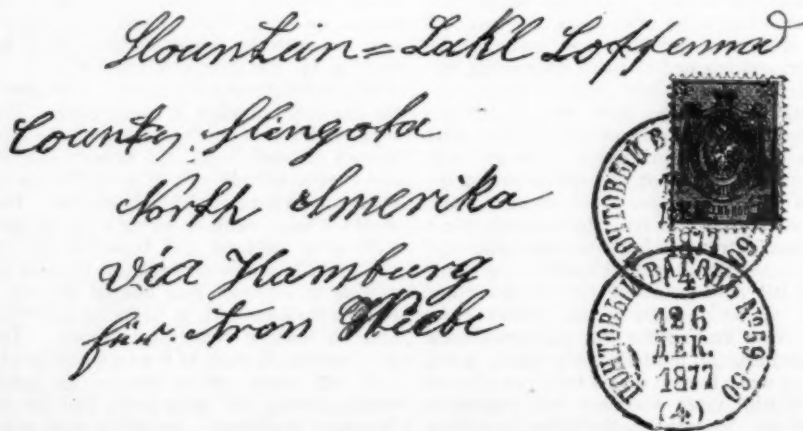 Mountein=Lakl
County. Mingota
North Amerika
via Hamburg
für. Aron Wiebe
ПОЧТОВЫЙ В
1877
60
ПОЧТОВЫЙ ВАГОНЪ №59-60
126
ДЕК.
1877
(4)